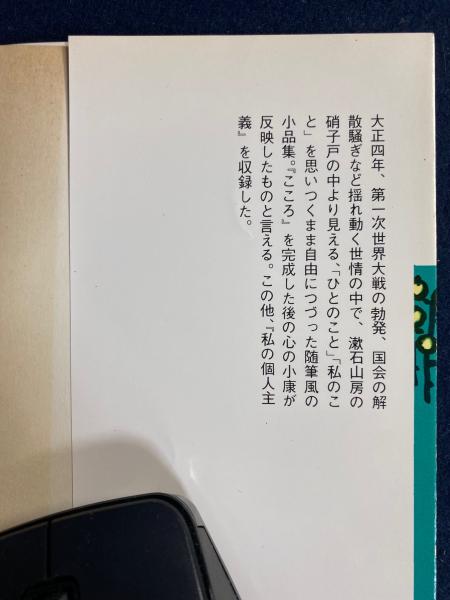 大正四年、第一次世界大戦の勃発、国会の解
散騒ぎなど揺れ動く世情の中で、漱石山房の
硝子戸の中より見える、「ひとのこと」「私のこ
と」を思いつくまま自由につづった随筆風の
小品集。『こころ』を完成した後の心の小康が
反映したものと言える。この他、『私の個人主
義』を収録した。